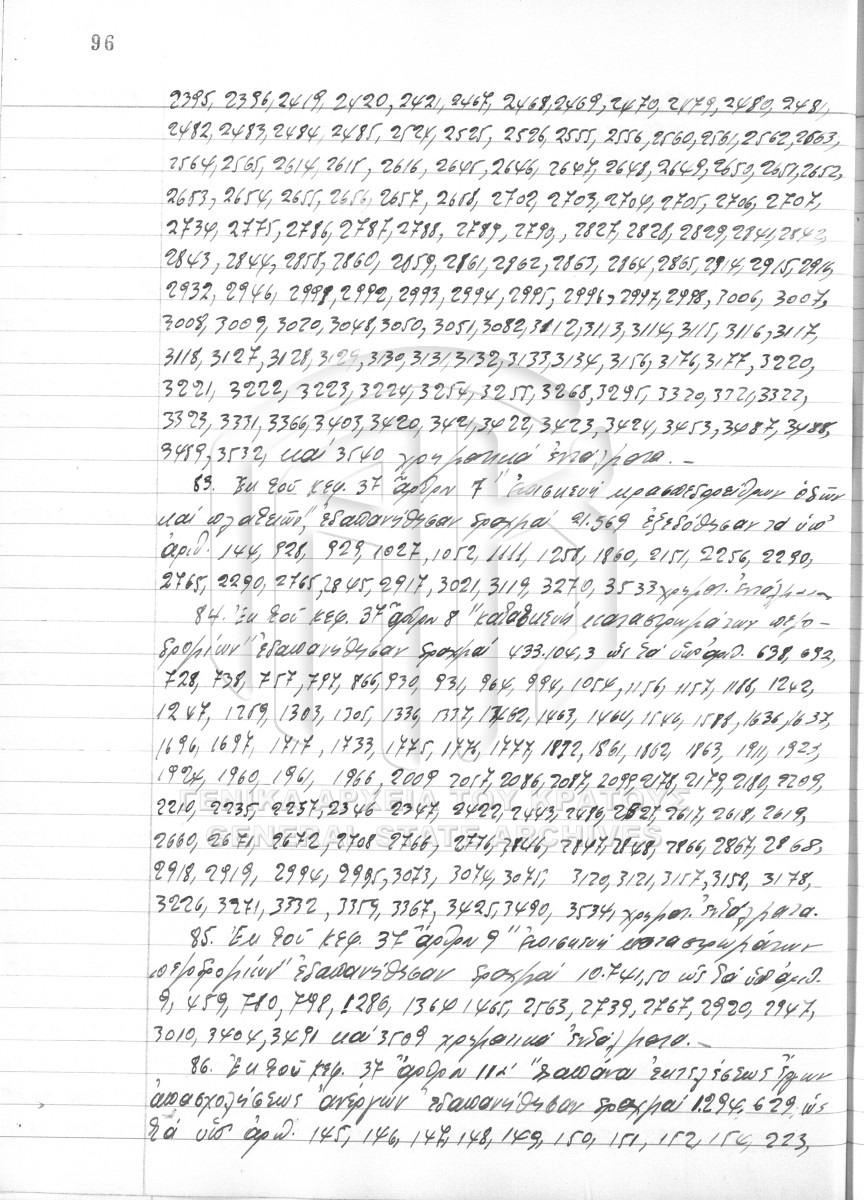 96
2395, 2396, 2419, 2420, 2421, 2467, 2468, 2469, 2470, 2479, 2480, 2481,
2482, 2483, 2484, 2485, 2524, 2525, 2526, 2555, 2556, 2560, 2561, 2562, 2563,
2564, 2565, 2614, 2615, 2616, 2645, 2646, 2647, 2648, 2649, 2650, 2651, 2652,
2653, 2654, 2655, 2656, 2657, 2658, 2702, 2703, 2704, 2705, 2706, 2707,
2734, 2775, 2786, 2787, 2788, 2789, 2790, 2827, 2828, 2829, 2841, 2842,
2843, 2844, 2858, 2860, 2859, 2861, 2862, 2863, 2864, 2865, 2914, 2915,
2932, 2946, 2992, 2993, 2994, 2995, 2996, 2997, 2998, 3006, 3007,
3008, 3009, 3020, 3048, 3050, 3051, 3082, 3112, 3113, 3114, 3115, 3116, 3117,
3118, 3127, 3128, 3129, 3130, 3131, 3132, 3133, 3134, 3156, 3176, 3177, 3220,
3221, 3222, 3223, 3224, 3254, 3255, 3268, 3295, 3320, 3321, 3322,
3323, 3331, 3366, 3403, 3420, 3421, 3422, 3423, 3424, 3453, 3487, 3488,
3489, 3532, καί 3540 χρηματικά ἐντάλματα. –
83. Ἐκ τοῦ κεφ. 37 ἄρθρου 7 "Ἐπισκευή κρασπεδορείθρων ὁδῶν
καί πλατειῶν", ἐδαπανήθησαν δραχμαί 21.569 ἐξεδόθησαν τά ὑπ'
ἀριθ. 144, 928, 929, 1027, 1052, 1111, 1258, 1860, 2151, 2256, 2290,
2765, 2290, 2765, 2845, 2917, 3021, 3119, 3270, 3533 χρημ. ἐντάλματα
84. Ἐκ τοῦ κεφ. 37 ἄρθρου 8 "κατασκευή καταστρωμάτων πεζο-
δρομίων" ἐδαπανήθησαν δραχμαί 433.104,3 ὡς τά ὑπ' ἀριθ. 638, 692,
728, 738, 757, 797, 866, 930, 931, 964, 994, 1054, 1156, 1157, 1186, 1242,
1247, 1259, 1303, 1305, 1336, 1337, 1462, 1463, 1464, 1546, 1588, 1636, 1637,
1696, 1697, 1717, 1733, 1775, 1776, 1777, 1861, 1862, 1863, 1911, 1923,
1924, 1960, 1961, 1966, 2009, 2057, 2086, 2087, 2099, 2178, 2179, 2180, 2209,
2210, 2235, 2237, 2346, 2347, 2422, 2443, 2486, 2527, 2617, 2618, 2619,
2660, 2671, 2672, 2708, 2766, 2776, 2846, 2847, 2848, 2866, 2867, 2868,
2918, 2919, 2994, 2995, 3073, 3074, 3075, 3120, 3121, 3157, 3158, 3178,
3226, 3271, 3332, 3359, 3367, 3425, 3490, 3534, χρημ. ἐντάλματα.
85. Ἐκ τοῦ κεφ. 37 ἄρθρου 9 "Ἐπισκευή καταστρωμάτων
πεζοδρομίων" ἐδαπανήθησαν δραχμαί 10.741,50 ὡς τά ὑπ' ἀριθ.
9, 459, 780, 798, 1286, 1364, 1465, 2563, 2739, 2767, 2920, 2947,
3010, 3404, 3491 καί 3509 χρηματικά ἐντάλματα. –
86. Ἐκ τοῦ κεφ. 37 ἄρθρου 11α' "Δαπάνα ἐκτελέσεως ἔργων
ἀπασχολήσεως ἀνέργων ἐδαπανήθησαν δραχμαί 1.294.629, ὡς
τά ὑπ' ἀριθ. 145, 146, 147, 148, 149, 150, 151, 152, 154, 223,
ΓΕΝΙΚΑ ΑΡΧΕΙΑ ΤΟΥ ΚΡΑΤΟΥΣ
GENERAL STATE ARCHIVES